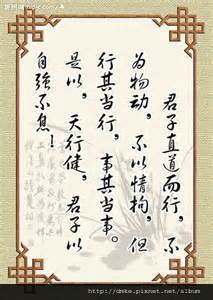 君子直道而行，不
为物动，不以情拘，但
行其当行，事其当事。
是以，天行健，君子以
自强不息！